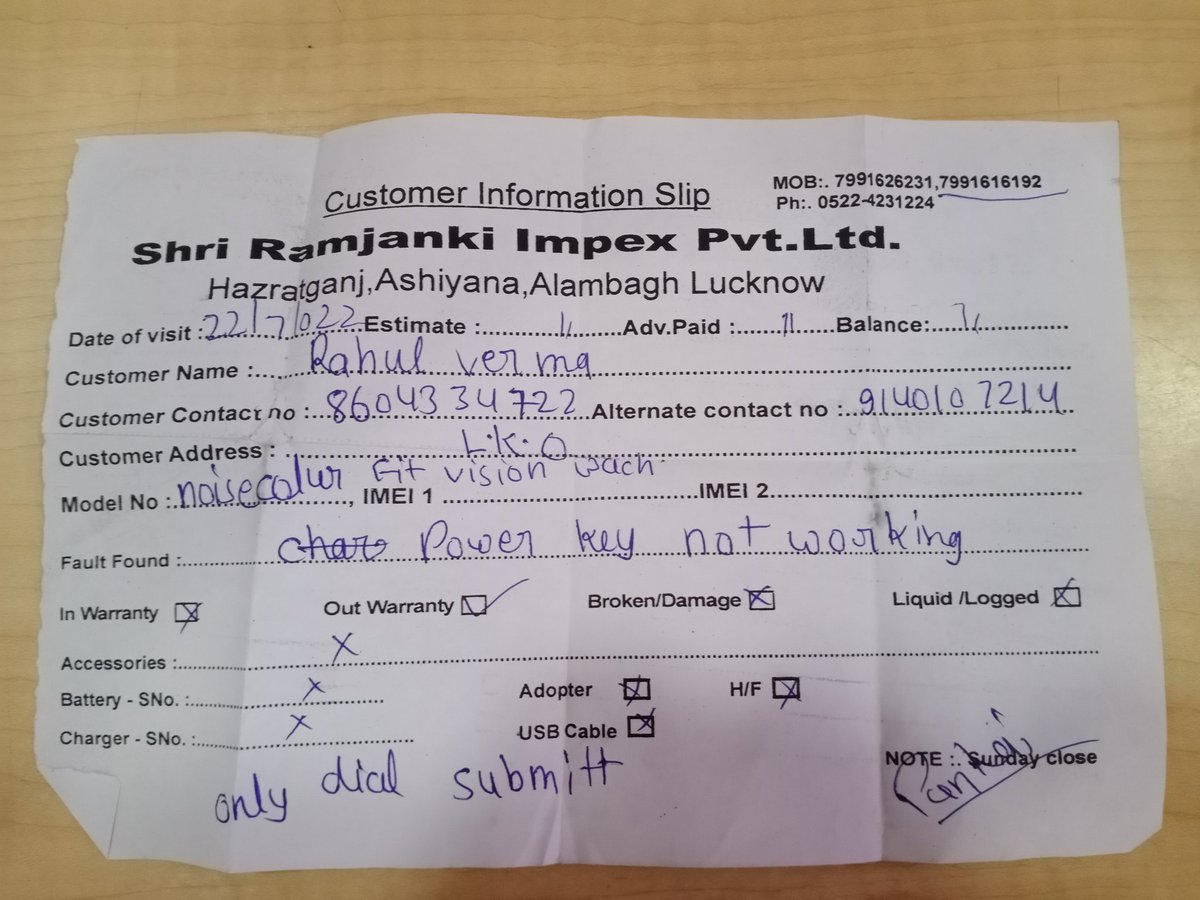 Customer Information Slip
MOB:. 7991626231,7991616192
Ph:. 0522-4231224
Shri Ramjanki Impex Pvt.Ltd.
Hazratganj,Ashiyana,Alambagh Lucknow
Date of visit :22/7/022 Estimate : Adv.Paid : Balance:
Customer Name : Rahul verma
Customer Contact no : 8604334722 Alternate contact no : 9140107214
Customer Address : L.K.O
Model No : noisecolur Fit vision wach , IMEI 1 IMEI 2
Fault Found : Power key not working
In Warranty Out Warranty Broken/Damage Liquid /Logged
Accessories : X
Battery - SNo. : X Adopter H/F
Charger - SNo. : X USB Cable
NOTE :. Sunday close
only dial submitt